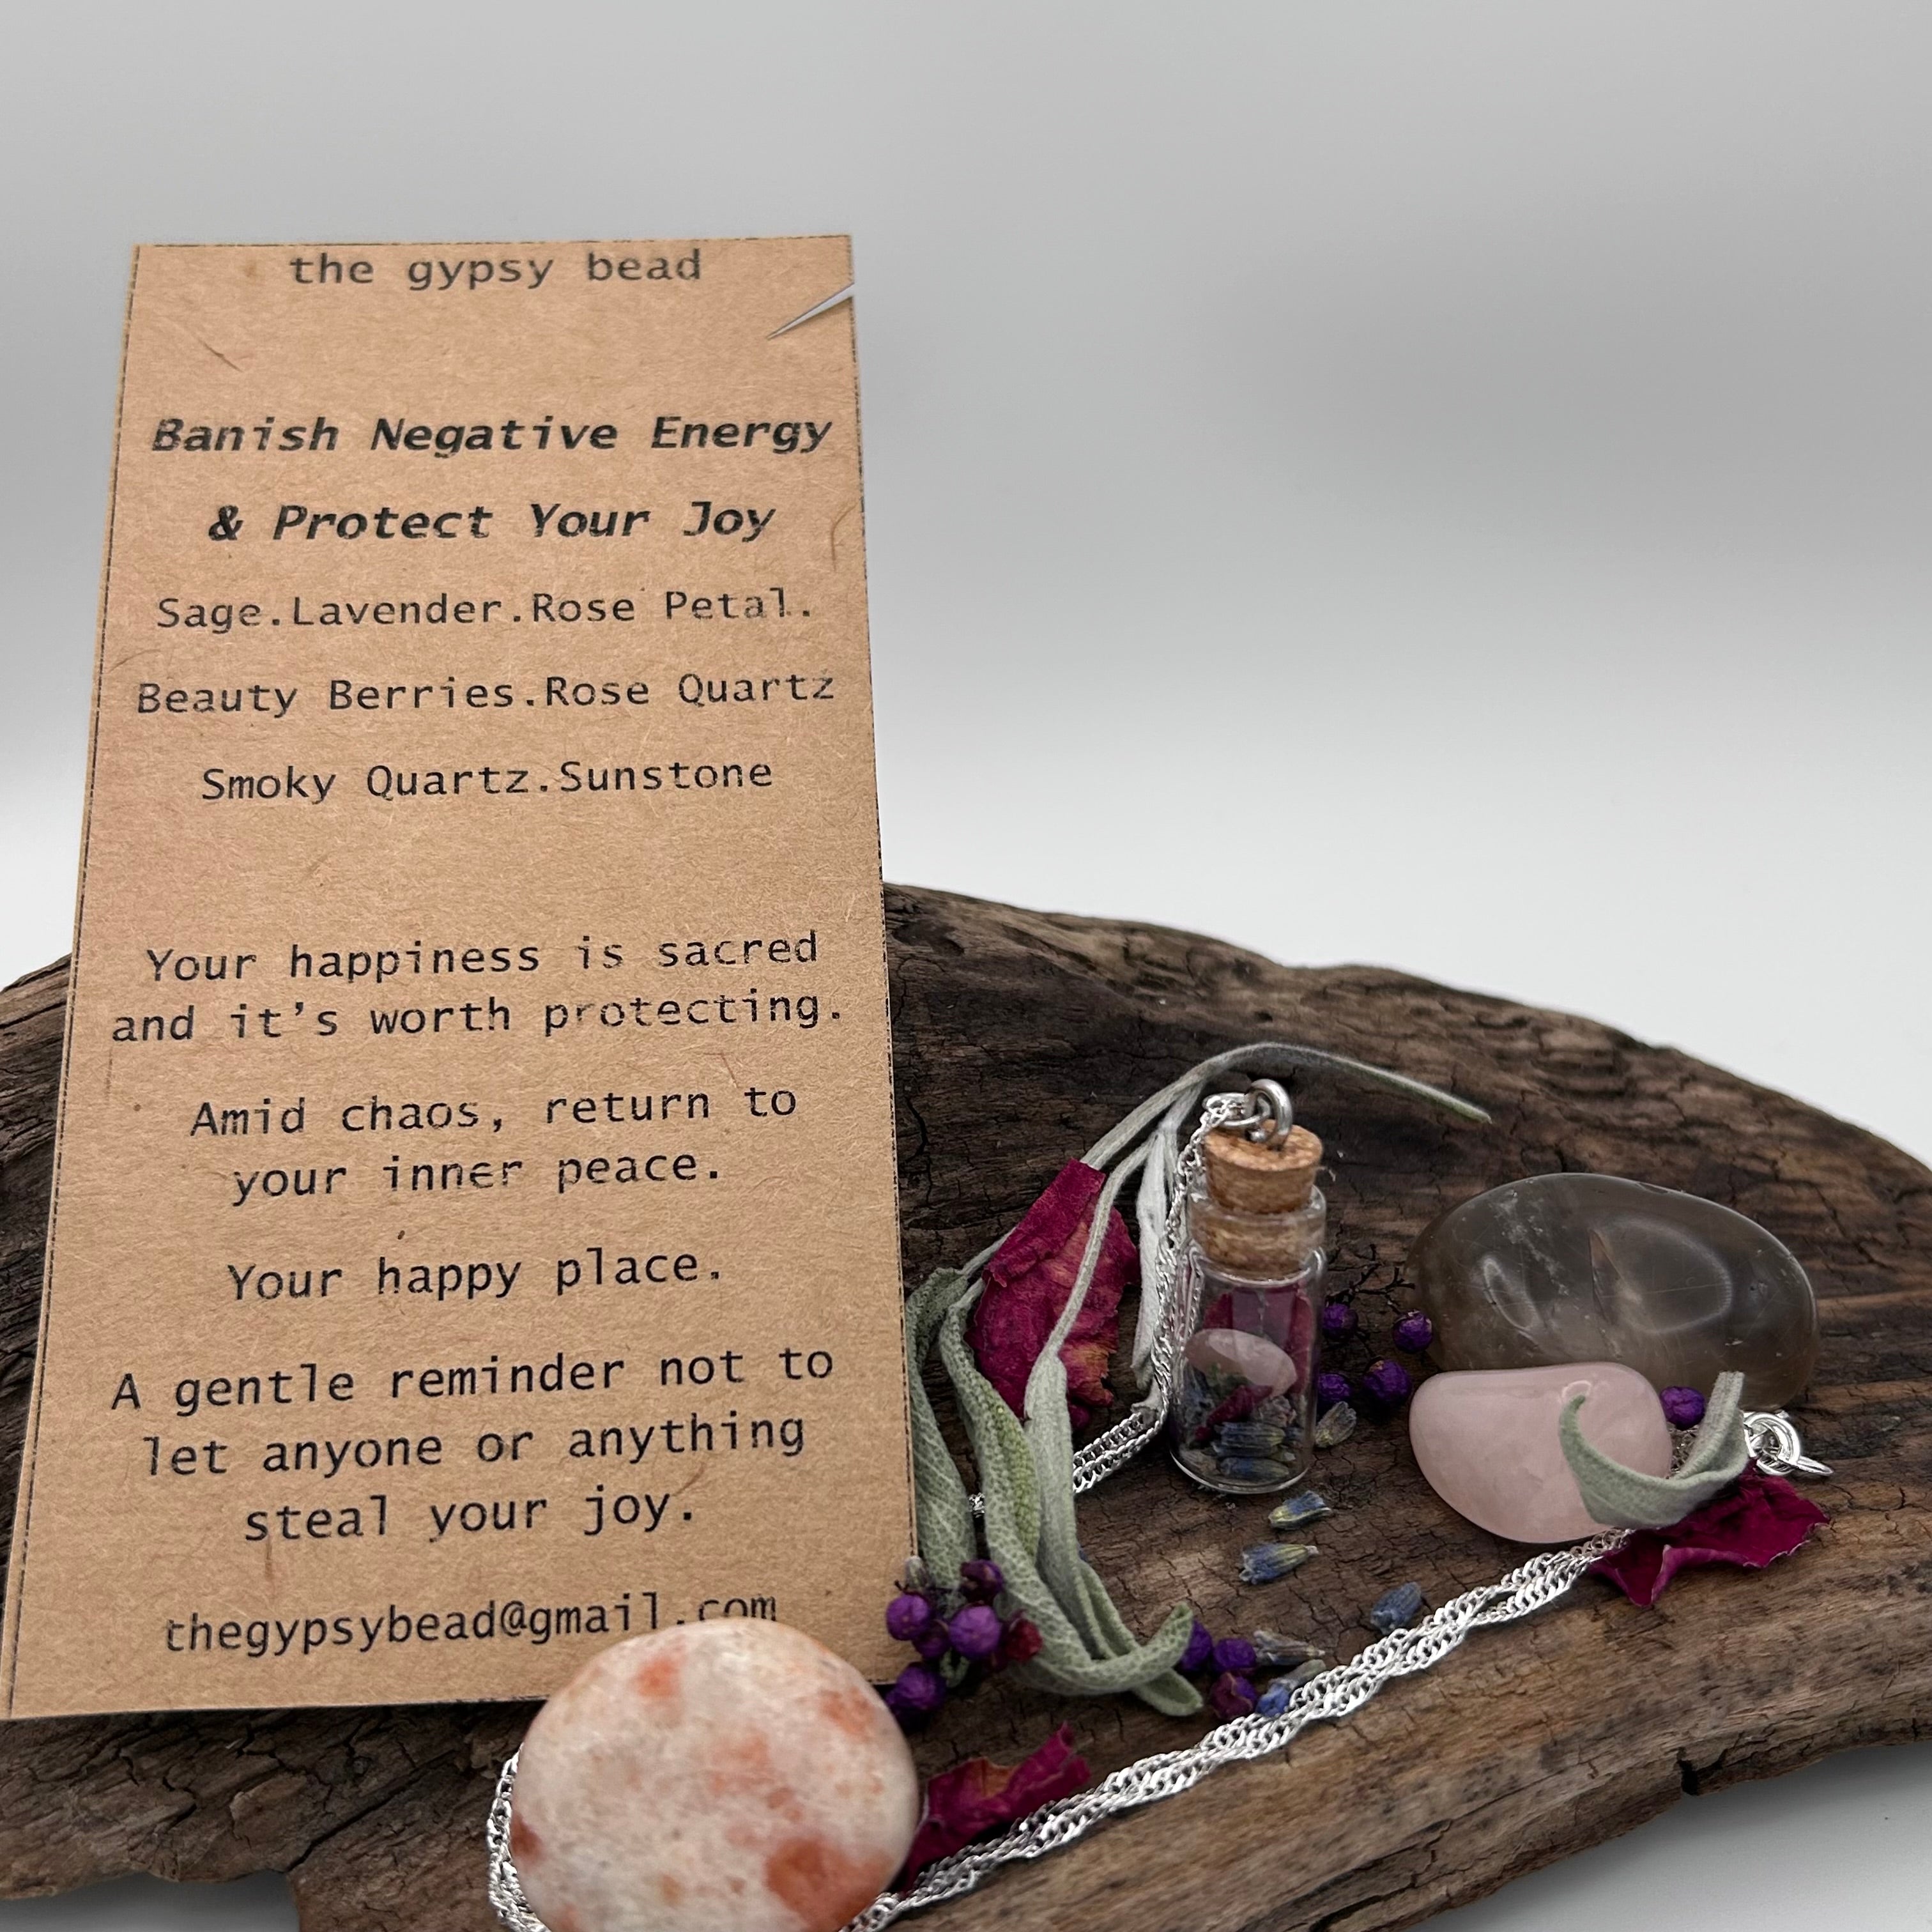 the gypsy bead
Banish Negative Energy
& Protect Your Joy
Sage.Lavender.Rose Petal.
Beauty Berries.Rose Quartz
Smoky Quartz.Sunstone
Your happiness is sacred
and it's worth protecting.
Amid chaos, return to
your inner peace.
Your happy place.
A gentle reminder not to
let anyone or anything
steal your joy.
thegypsybead@gmail.com